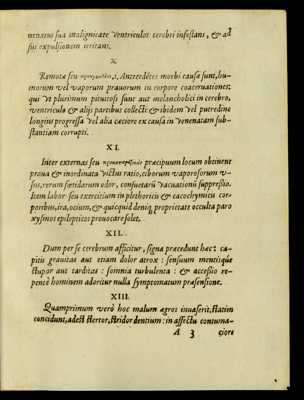 nenatus sua malignitate ventriculos cerebri infestans, & ad
sui expulsionem irritans.
X.
Remotæ seu προηγούμεναι, Antecedẽtes morbi causæ sunt, hu-
morum vel vaporum prauorum in corpore coaceruationes:
qui vt plurimùm pituitosi sunt aut melancholici in cerebro,
ventriculo & alijs partibus collecti: & ibidem vel putredine
longius progressa vel alia cæciore ex causa in venenatam sub-
stantiam corrupti.
XI.
Inter externas seu προκαταρκτικὰς præcipuum locum obtinent
praua & inordinata victus ratio, ciborum vaporosorum v-
sus, rerum fœtidarum odor, consuetarũ vacuationũ suppressio.
Item labor seu exercitium in plethoricis & cacochymicis cor-
poribus, ira, ocium, & quicquid deniq; proprietate occulta paro
xysmos epilepticos prouocare solet.
XII.
Dum per se cerebrum afficitur, signa præcedunt hæc: ca-
pitis grauitas aut etiam dolor atrox: sensuum mentisque
stupor aut tarditas: somnia turbulenta: & accessio re-
pentè hominem adoritur nulla symptomatum præsensione.
XIII.
Quamprimum verò hoc malum ægros inuaserit, statim
concidunt, adest stertor, stridor dentium: in affectu contuma-
A 3 ciore